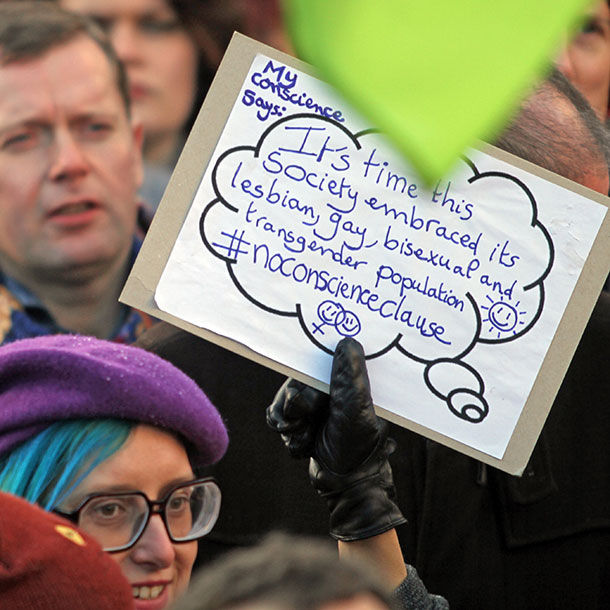 My
conscience
says:
It's time this
Society embraced its
lesbian, gay, bisexual and
transgender population
#noconscienceclause